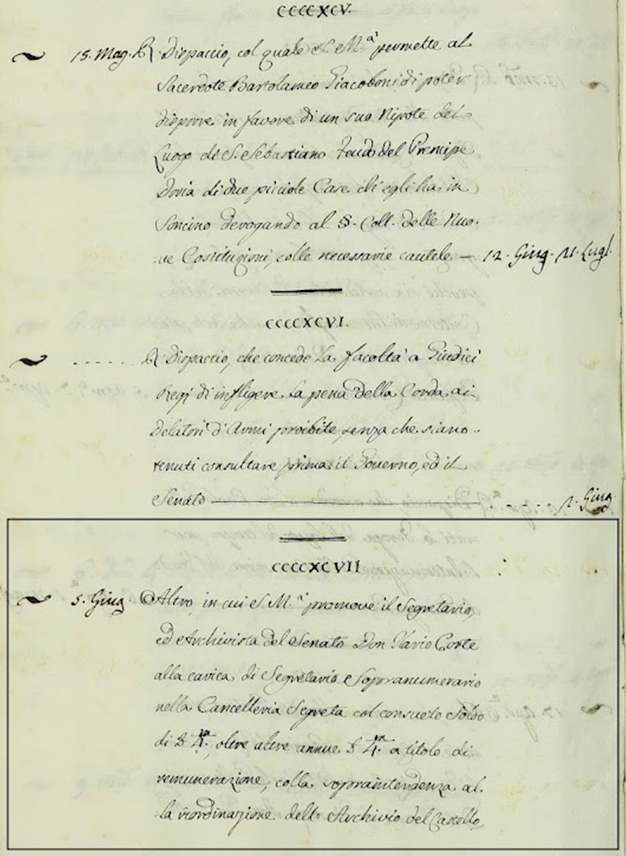 CCCCXCV.
15. Mag. R. Dispaccio, col quale S. M.ª permette al
Sacerdote Bartolameo Giacobonidi poter
disporre in favore di un suo Nipote del
Luogo di S. Sebastiano feudo del Prencipe
Doria di due picciole Case ch'egli ha in
Soncino derogando al §. Coll. delle Nuo-
ve Costituzioni, colle necessarie cautele — 12. Giug. 21. Lugl.
CCCCXCVI.
R. Dispaccio, che concede la facoltà a Giudici
Regj di infligere la pena della Corda ai
Delatori d'Armi proibite senza che siano
tenuti consultare prima il Governo, ed il
Senato Giug.
CCCCXCVII
5. Giug Altro, in cui S. M.ª promove il Segretario,
ed Archivista del Senato Don Ilario Corte
alla carica di Segretario Sopranumerario
nella Cancelleria Segreta col consueto Soldo
di 4.m, oltre altre annue 4.m a titolo di
remunerazione, colla sopraintendenza al-
la riordinazione dell'Archivio del Castello,